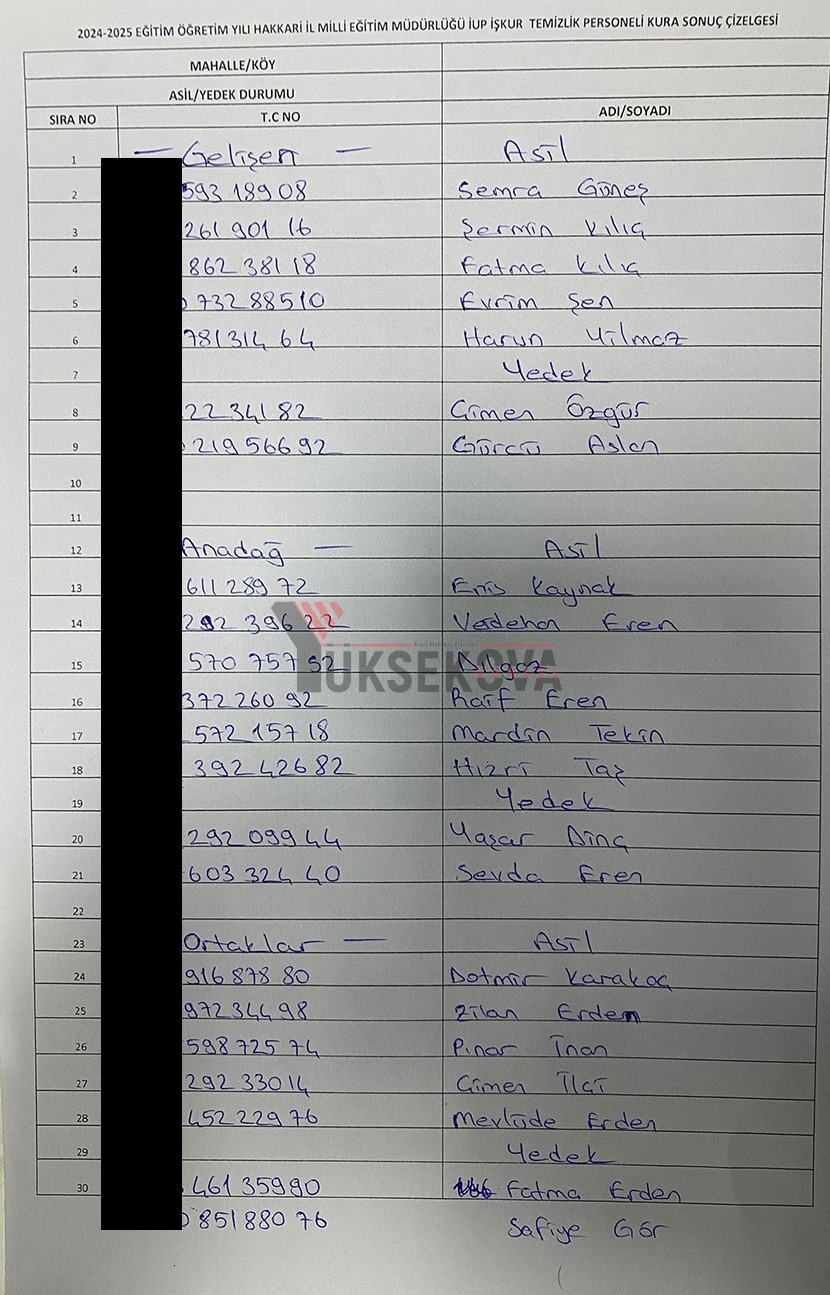 2024-2025 EĞİTİM ÖĞRETİM YILI HAKKARİ İL MİLLİ EĞİTİM MÜDÜRLÜĞÜ İUP İŞKUR TEMİZLİK PERSONELİ KURA SONUÇ ÇİZELGESİ
MAHALLE/KÖY
ASİL/YEDEK DURUMU
SIRA NO T.C NO ADI/SOYADI
1 — Gelişen — Asil
2 593 189 08 Semra Güneş
3 261 901 16 Şermin Kılıç
4 862 381 18 Fatma Kılıç
5 732 88510 Evrim Şen
6 781314 64 Harun Yılmaz
7 Yedek
8 22 341 82 Gimen Özgür
9 219 566 92 Gürcü Aslan
10
11
12 Anadağ — Asil
13 611 289 72 Enis Kaynak
14 292 396 22 Vedehan Eren
15 570 757 52 Dilgaz
YÜKSEKOVA
16 372 260 92 Raif Eren
17 572 157 18 Mardin Tekin
18 392 42682 Hızri Taş
19 Yedek
20 292 099 44 Yaşar Dinç
21 603 324 40 Sevda Eren
22
23 Ortaklar — Asil
24 916 878 80 Dotmir Karakoç
25 972 344 98 Zilan Erden
26 598 725 74 Pınar İnan
27 292 33014 Gimen İlçi
28 452 229 76 Mevlüde Erden
29 Yedek
30 461 35990 Fatma Erden
851 880 76 Safiye Gür